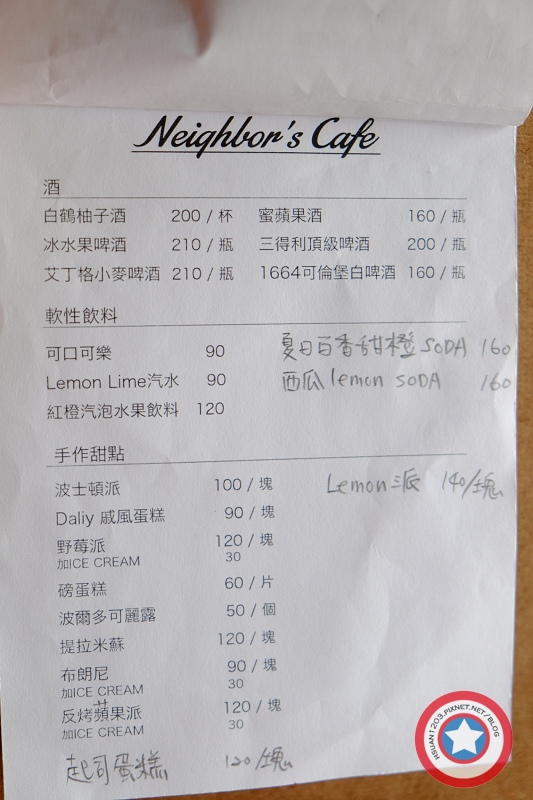 Neighbor's Cafe
酒
白鶴柚子酒 200 / 杯 蜜蘋果酒 160 / 瓶
冰水果啤酒 210 / 瓶 三得利頂級啤酒 200 / 瓶
艾丁格小麥啤酒 210 / 瓶 1664可倫堡白啤酒 160 / 瓶
軟性飲料
可口可樂 90 夏日百香甜橙 SODA 160
Lemon Lime汽水 90 西瓜 lemon SODA 160
紅橙汽泡水果飲料 120
手作甜點
波士頓派 100 / 塊 Lemon 派 140/塊
Daliy 戚風蛋糕 90 / 塊
野莓派 120 / 塊
加ICE CREAM 30
磅蛋糕 60 / 片
波爾多可麗露 50 / 個
提拉米蘇 120 / 塊
布朗尼 90 / 塊
加ICE CREAM 30
反烤蘋果派 120 / 塊
加ICE CREAM 30
起司蛋糕 120/塊
HSUAN1203.PIXNET.NET/BLOG